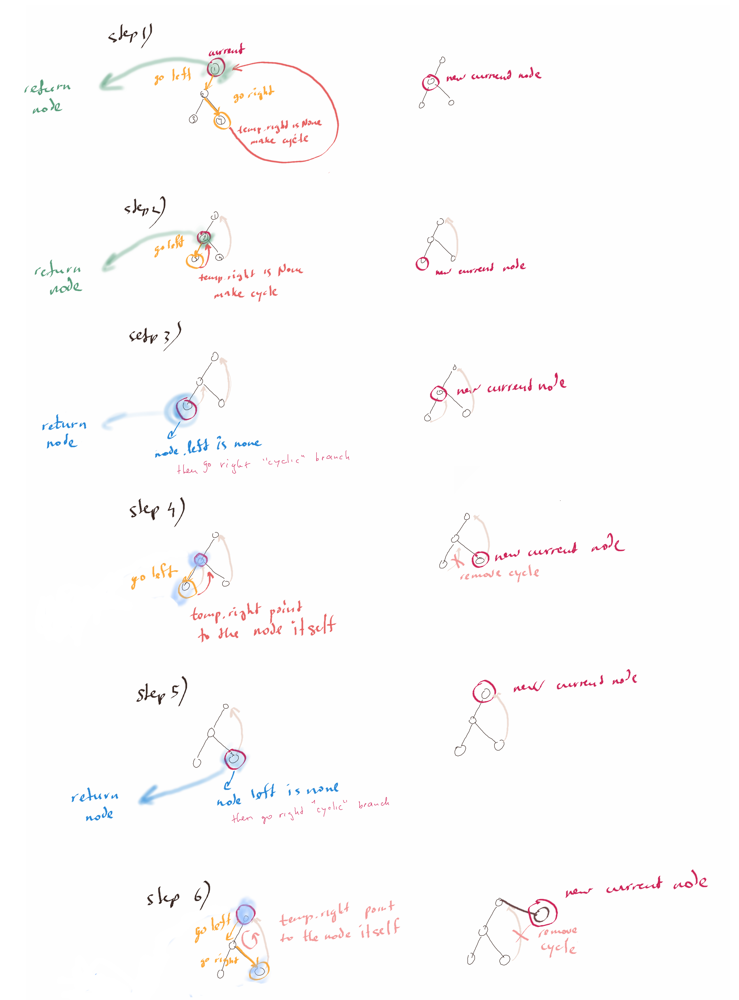 step 1)
current
go left
return
node
go right
temp.right is None
make cycle
new current node
step 2)
go left
return
node
temp.right is None
make cycle
new current node
setp 3)
return
node
node.left is none
then go right "cyclic" branch
new current node
step 4)
go left
temp.right point
to the node itself
new current node
remove cycle
step 5)
return
node
node left is none
then go right "cyclic" branch
new current node
step 6)
go left
go right
temp.right point
to the node itself
new current node
remove
cycle